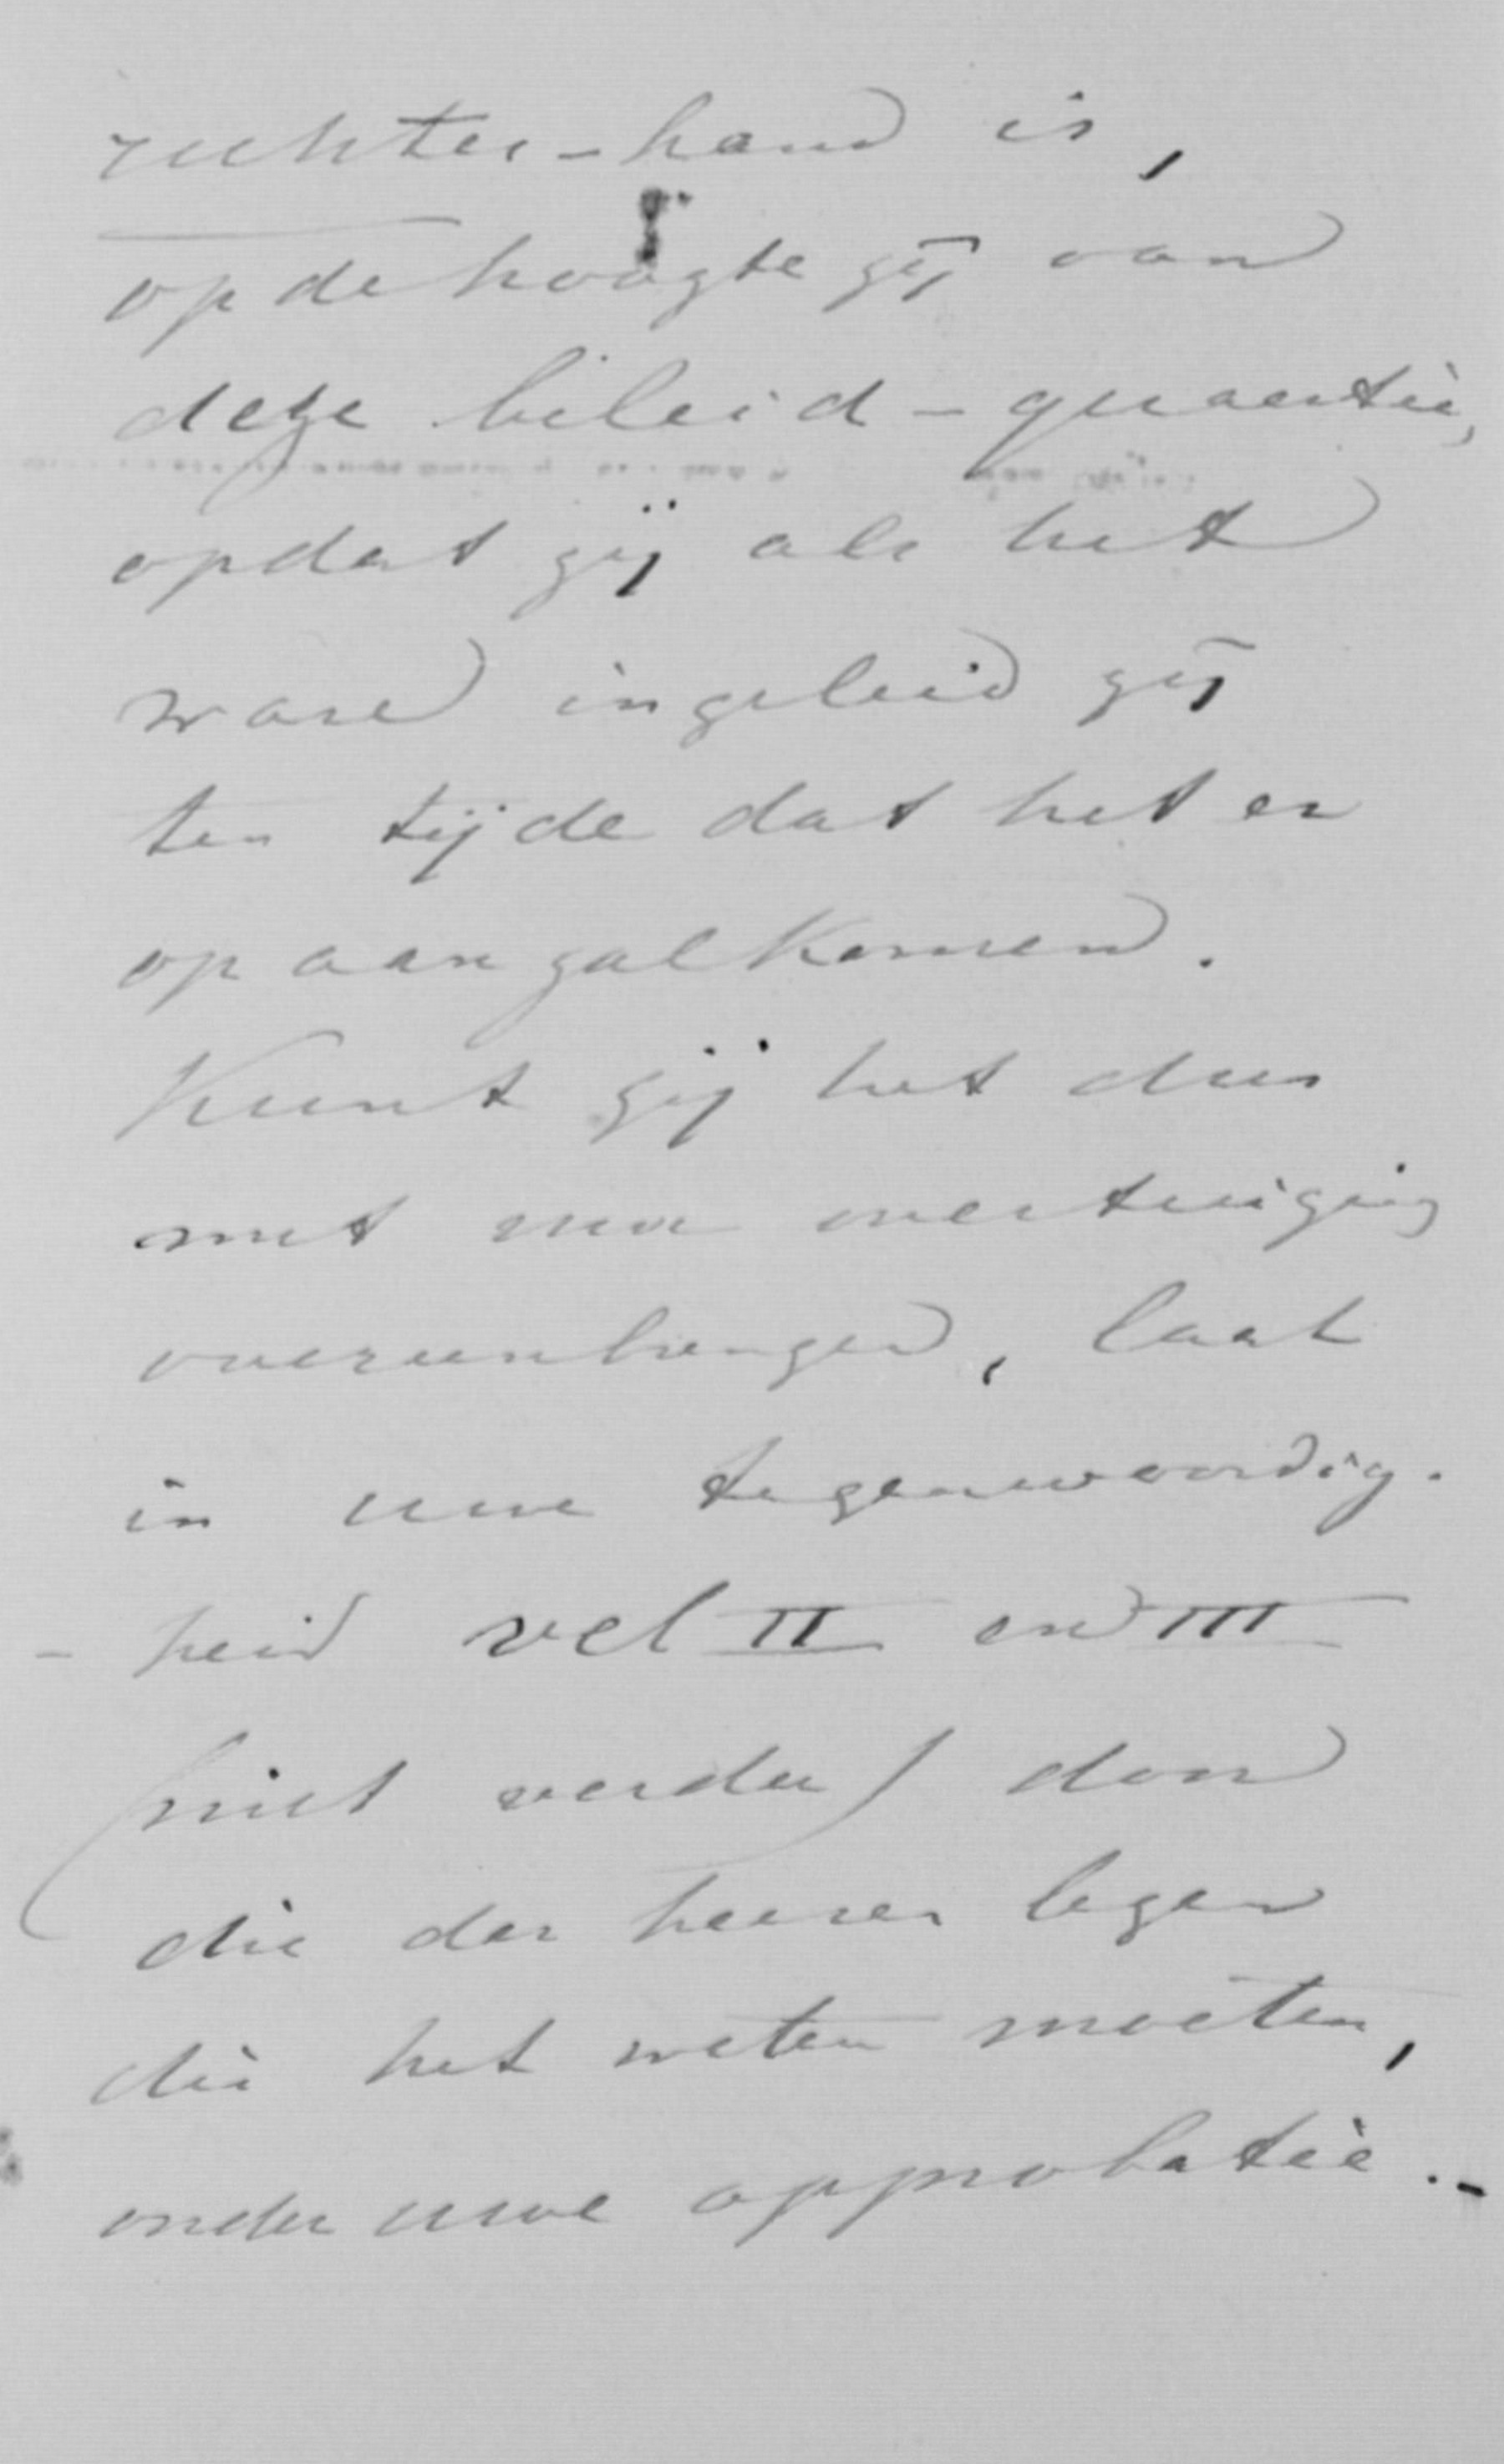 rechter-hand is,
op de hoogte zij van
deze beleid-quaestie,
opdat zij als het
ware ingeleid zij
ten tijde dat het er
op aan zal komen.
Kunt gij het dus
met uw overtuiging
overeenbrengen, laat
in uwe tegenwoordig-
-heid vel II en III
(niet verder) door
die der heeren lezen
die het weten moeten,
onder uwe approbatie.-